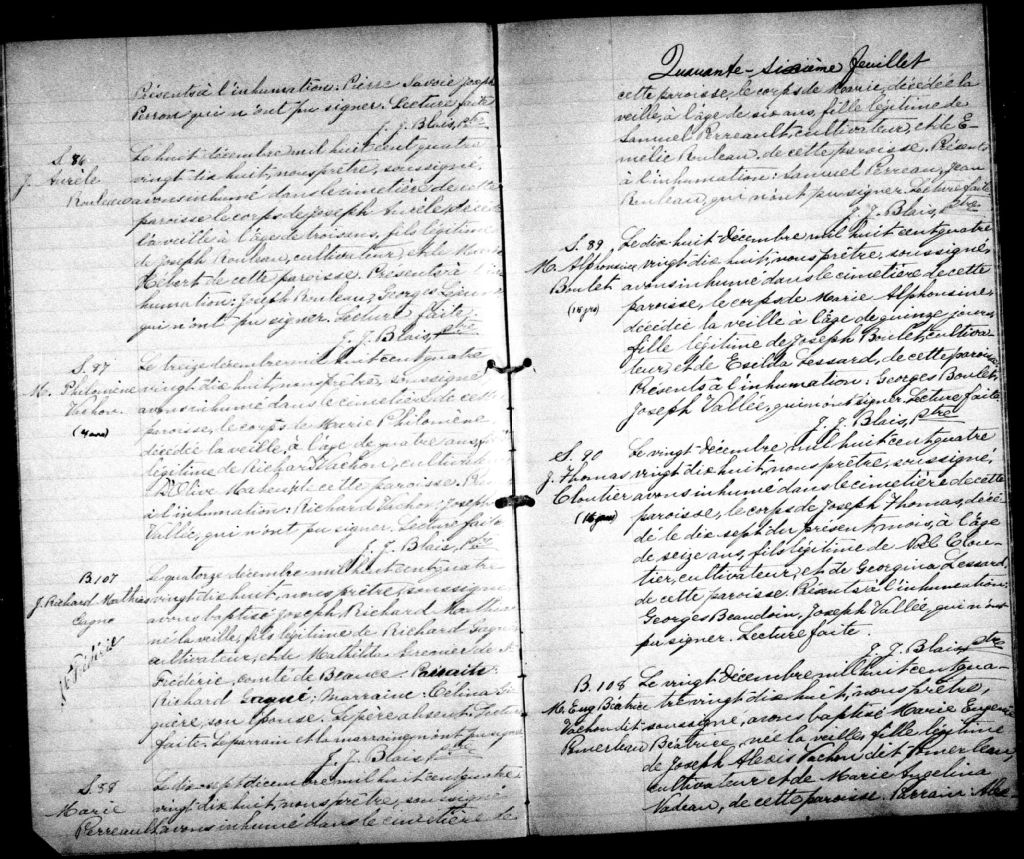 Présents à l'inhumation: Pierre Savoie, Joseph
Perron qui n'ont pu signer. Lecture faite
J. J. Blais, Ptre
S. 86
J. Aurèle
Rouleau
Le huit décembre mil huit cent quatre
vingt dix huit, nous prêtre, soussigné,
avons inhumé dans le cimetière de cette
paroisse le corps de Joseph Aurèle, décédé
l'aveille à l'âge de trois ans, fils légitime
de Joseph Rouleau, cultivateur, et de Marie
Hébert de cette paroisse. Présents à l'in
humation: Joseph Rouleau, Georges
qui n'ont pu signer. Lecture faite.
J. J. Blais, ptre
S. 87
M. Philomène
Vachon
(4 ans)
Le treize décembre mil huit cent quatre
vingt dix huit, nous prêtre, soussigné
avons inhumé dans le cimetière de cette
paroisse, le corps de Marie Philomène
décédée la veille, à l'âge de quatre ans, fille
légitime de Richard Vachon, cultivateur
d'Olive Maheu, de cette paroisse. Pré
à l'inhumation: Richard Vachon, Joseph
Vallée, qui n'ont pu signer. Lecture faite
J. J. Blais, Ptre
B. 107
J. Richard Mathias
Gagné
St Frédéric
Le quatorze décembre mil huit cent quatre
vingt dix huit, nous prêtre, soussigné
avons baptisé Joseph Richard Mathias
né la veille, fils légitime de Richard Gagné
cultivateur, et de Mathilda Grenier de St
Fédéric, comté de Beauce. Parrain:
Richard Gagné; Marraine: Célina Gi
guère, son épouse. Le père absent. Lecture
faite. Le parrain et la marraine n'ont pu signer
J. J. Blais, ptre
S. 88
Marie
Perreault
Le dix sept décembre mil huit cent quatre
vingt dix huit, nous prêtre, soussigné,
avons inhumé dans le cimetière de
Quarante-sixième feuillet
cette paroisse, le corps de Marie, décédée la
veille, à l'âge de six ans, fille légitime de
Samuel Perreault, cultivateur, et de E-
mélie Rouleau, de cette paroisse. Présents
à l'inhumation: Samuel Perreau, Jean
Rouleau, qui n'ont pu signer. Lecture faite
J. J. Blais, ptre
S. 89
M. Alphonsine
Boulet
(15 jrs)
Le dix huit décembre mil huit cent quatre
vingt dix huit, nous prêtre, soussigné,
avons inhumé dans le cimetière de cette
paroisse, le corps de Marie Alphonsine,
décédée la veille à l'âge de quinze jours
fille légitime de Joseph Boulet, cultiva-
teur, et de Esilda Lessard, de cette paroisse
Présents à l'inhumation: Georges Boulet,
Joseph Vallée, qui n'ont signer. Lecture faite.
J. J. Blais, Ptre
S. 90
J. Thomas
Cloutier
(16 ans)
Le vingt décembre, mil huit cent quatre
vingt dix huit, nous prêtre, soussigné,
avons inhumé dans le cimetière de cette
paroisse, le corps de Joseph Thomas, décé-
dé le dix sept du présent mois, à l'âge
de seize ans, fils légitime de Noël Clou-
tier, cultivateur, et de Georgina Lessard,
de cette paroisse. Présents à l'inhumation:
Georges Beaudoin, Joseph Vallée, qui n'ont
pu signer. Lecture faite.
J. J. Blais, ptre
B. 108
M. Eug Béatrice
Vachon dit
Pomerleau
Le vingt décembre mil huit cent qua-
tre vingt dix huit, nous prêtre,
soussigné, avons baptisé Marie Eugénie
Béatrice, née la veille, fille légitime
de Joseph Alexis Vachon dit Pomerleau,
cultivateur et de Marie Angelina
Nadeau, de cette paroisse. Parrain: Alex